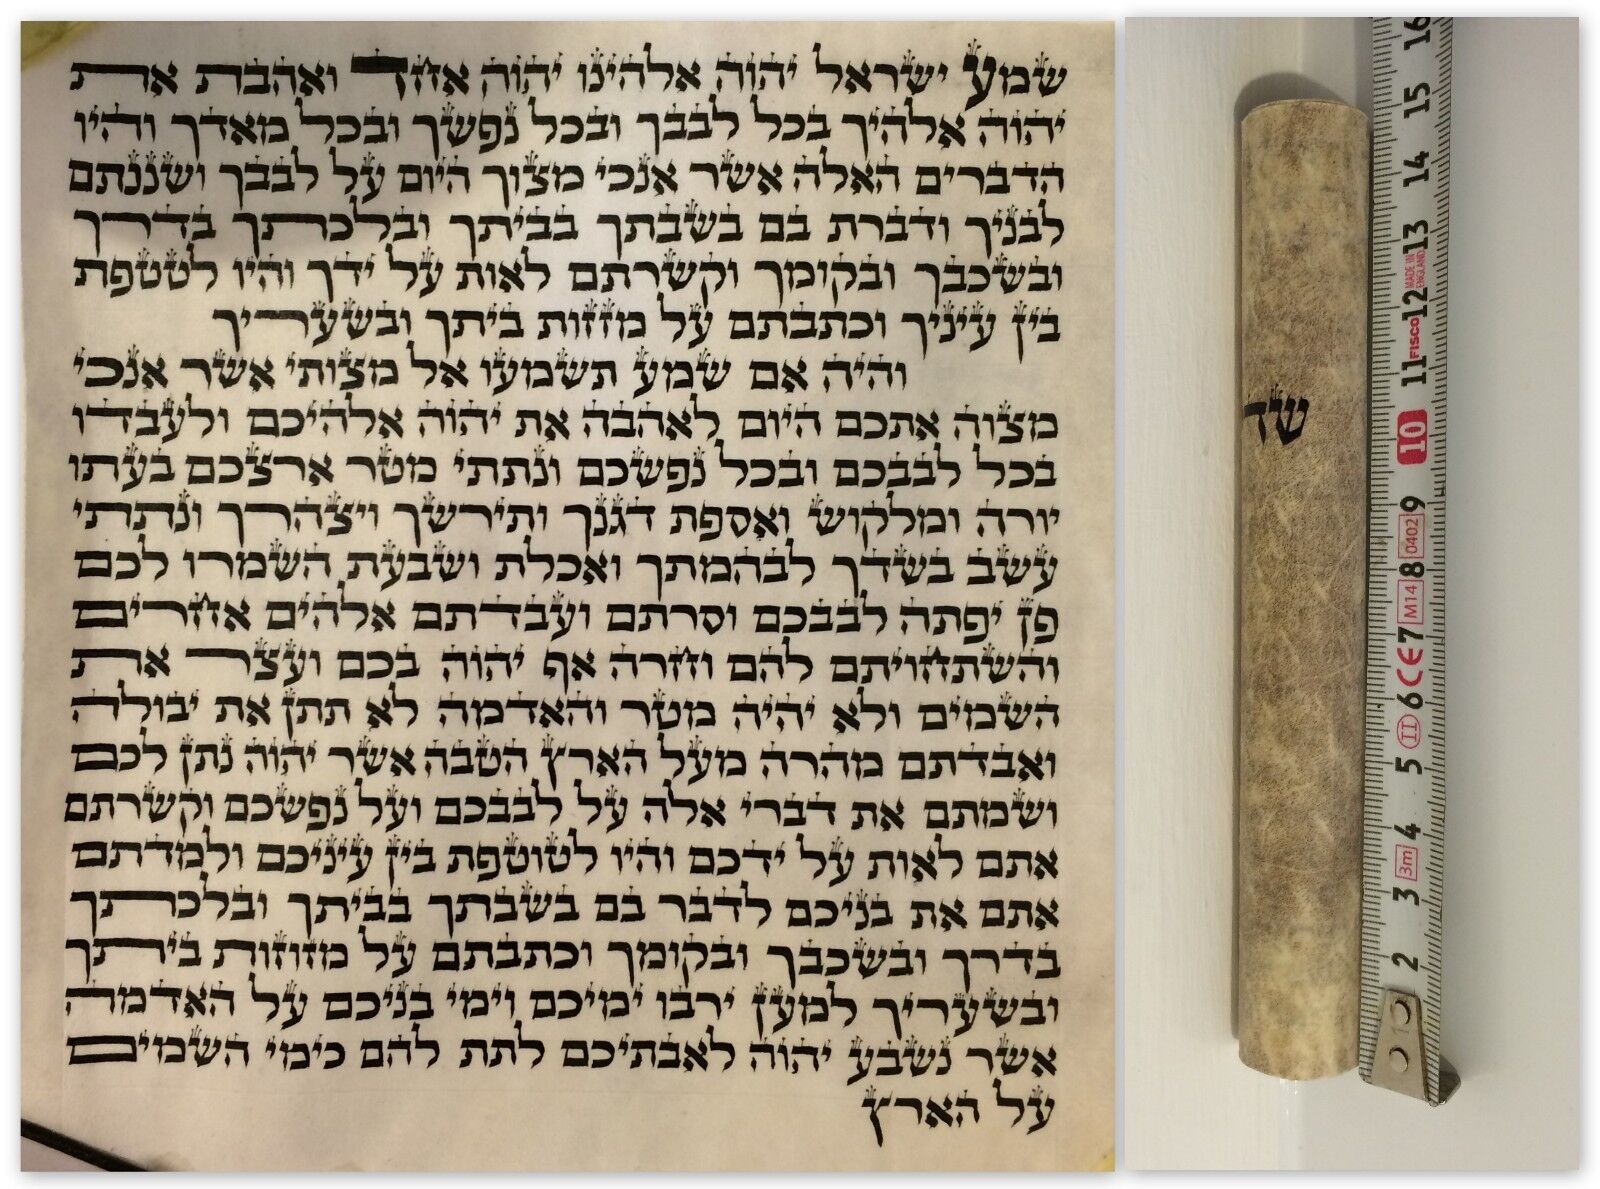 שמע ישראל יהוה אלהינו יהוה אחד ואהבת את
יהוה אלהיך בכל לבבך ובכל נפשך ובכל מאדך והיו
הדברים האלה אשר אנכי מצוך היום על לבבך ושננתם
לבניך ודברת בם בשבתך בביתך ובלכתך בדרך
ובשכבך ובקומך וקשרתם לאות על ידך והיו לטטפת
בין עיניך וכתבתם על מזזות ביתך ובשעריך
והיה אם שמע תשמעו אל מצותי אשר אנכי
מצוה אתכם היום לאהבה את יהוה אלהיכם ולעבדו
בכל לבבכם ובכל נפשכם ונתתי מטר ארצכם בעתו
יורה ומלקוש ואספת דגנך ותירשך ויצהרך ונתתי
עשב בשדך לבהמתך ואכלת ושבעת השמרו לכם
פן יפתה לבבכם וסרתם ועבדתם אלהים אחרים
והשתחויתם להם וחרה אף יהוה בכם ועצר את
השמים ולא יהיה מטר והאדמה לא תתן את יבולה
ואבדתם מהרה מעל הארץ הטבה אשר יהוה נתן לכם
ושמתם את דברי אלה על לבבכם ועל נפשכם וקשרתם
אתם לאות על ידכם והיו לטוטפת בין עיניכם ולמדתם
אתם את בניכם לדבר בם בשבתך בביתך ובלכתך
בדרך ובשכבך ובקומך וכתבתם על מזוזות ביתך
ובשעריך למען ירבו ימיכם וימי בניכם על האדמה
אשר נשבע יהוה לאבתיכם לתת להם כימי השמים
על הארץ
שד
16
15
14
13
MADE IN ENGLAND
12
FISCO
11
10
9
0402
8
M14
7
CE
6
II
5
4
3m
3
2